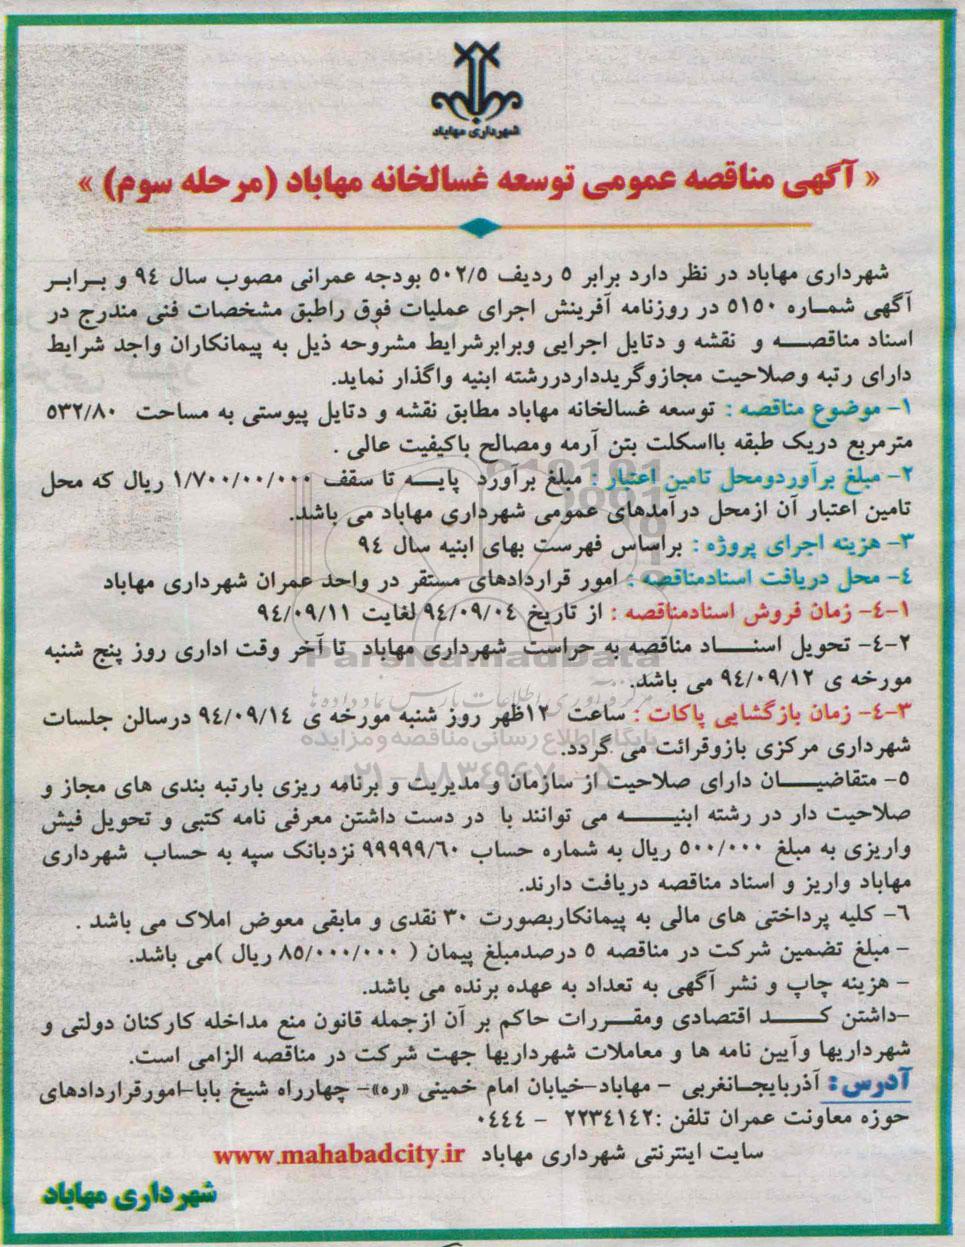 شهرداری مهاباد
« آگهی مناقصه عمومی توسعه غسالخانه مهاباد (مرحله سوم) »
شهرداری مهاباد در نظر دارد برابر ۵ ردیف ۵۰۲/۵ بودجه عمرانی مصوب سال ۹۴ و برابر
آگهی شماره ۵۱۵۰ در روزنامه آفرینش اجرای عملیات فوق راطبق مشخصات فنی مندرج در
اسناد مناقصه و نقشه و دتایل اجرایی وبرابرشرایط مشروحه ذیل به پیمانکاران واجد شرایط
دارای رتبه وصلاحیت مجازوگریدداردررشته ابنیه واگذار نماید.
۱- موضوع مناقصه : توسعه غسالخانه مهاباد مطابق نقشه و دتایل پیوستی به مساحت ۵۳۲/۸۰
مترمربع دریک طبقه بااسکلت بتن آرمه ومصالح باکیفیت عالی .
۲- مبلغ برآوردومحل تامین اعتبار : مبلغ برآورد پایه تا سقف ۱/۷۰۰/۰۰/۰۰۰ ریال که محل
تامین اعتبار آن ازمحل درآمدهای عمومی شهرداری مهاباد می باشد.
۳- هزینه اجرای پروژه : براساس فهرست بهای ابنیه سال ۹۴
۴- محل دریافت اسنادمناقصه : امور قراردادهای مستقر در واحد عمران شهرداری مهاباد
۴-۱- زمان فروش اسنادمناقصه : از تاریخ ۹۴/۰۹/۰۴ لغایت ۹۴/۰۹/۱۱
۴-۲- تحویل اسناد مناقصه به حراست شهرداری مهاباد تا آخر وقت اداری روز پنج شنبه
ParsNamadData
مورخه ی ۹۴/۰۹/۱۲ می باشد.
مرکز فرآوری اطلاعات پارس نماد داده ها
۴-۳- زمان بازگشایی پاکات : ساعت ۱۲ظهر روز شنبه مورخه ی ۹۴/۰۹/۱۴ درسالن جلسات
پایگاه اطلاع رسانی مناقصه و مزایده
شهرداری مرکزی بازوقرائت می گردد.
۰۲۱-۸۸۳۴۹۶۷۰-۵
۵- متقاضیان دارای صلاحیت از سازمان و مدیریت و برنامه ریزی بارتبه بندی های مجاز و
صلاحیت دار در رشته ابنیه می توانند با در دست داشتن معرفی نامه کتبی و تحویل فیش
واریزی به مبلغ ۵۰۰/۰۰۰ ریال به شماره حساب ۹۹۹۹۹/۶۰ نزدبانک سپه به حساب شهرداری
مهاباد واریز و اسناد مناقصه دریافت دارند.
۶- کلیه پرداختی های مالی به پیمانکاربصورت ۳۰ نقدی و مابقی معوض املاک می باشد .
- مبلغ تضمین شرکت در مناقصه ۵ درصدمبلغ پیمان ( ۸۵/۰۰۰/۰۰۰ ریال )می باشد.
- هزینه چاپ و نشر آگهی به تعداد به عهده برنده می باشد.
-داشتن کد اقتصادی ومقررات حاکم بر آن ازجمله قانون منع مداخله کارکنان دولتی و
شهرداریها وآیین نامه ها و معاملات شهرداریها جهت شرکت در مناقصه الزامی است.
آدرس: آذربایجانغربی - مهاباد-خیابان امام خمینی «ره»- چهارراه شیخ بابا-امورقراردادهای
حوزه معاونت عمران تلفن :۲۲۳۴۱۴۲ - ۰۴۴۴
سایت اینترنتی شهرداری مهاباد www.mahabadcity.ir
شهرداری مهاباد